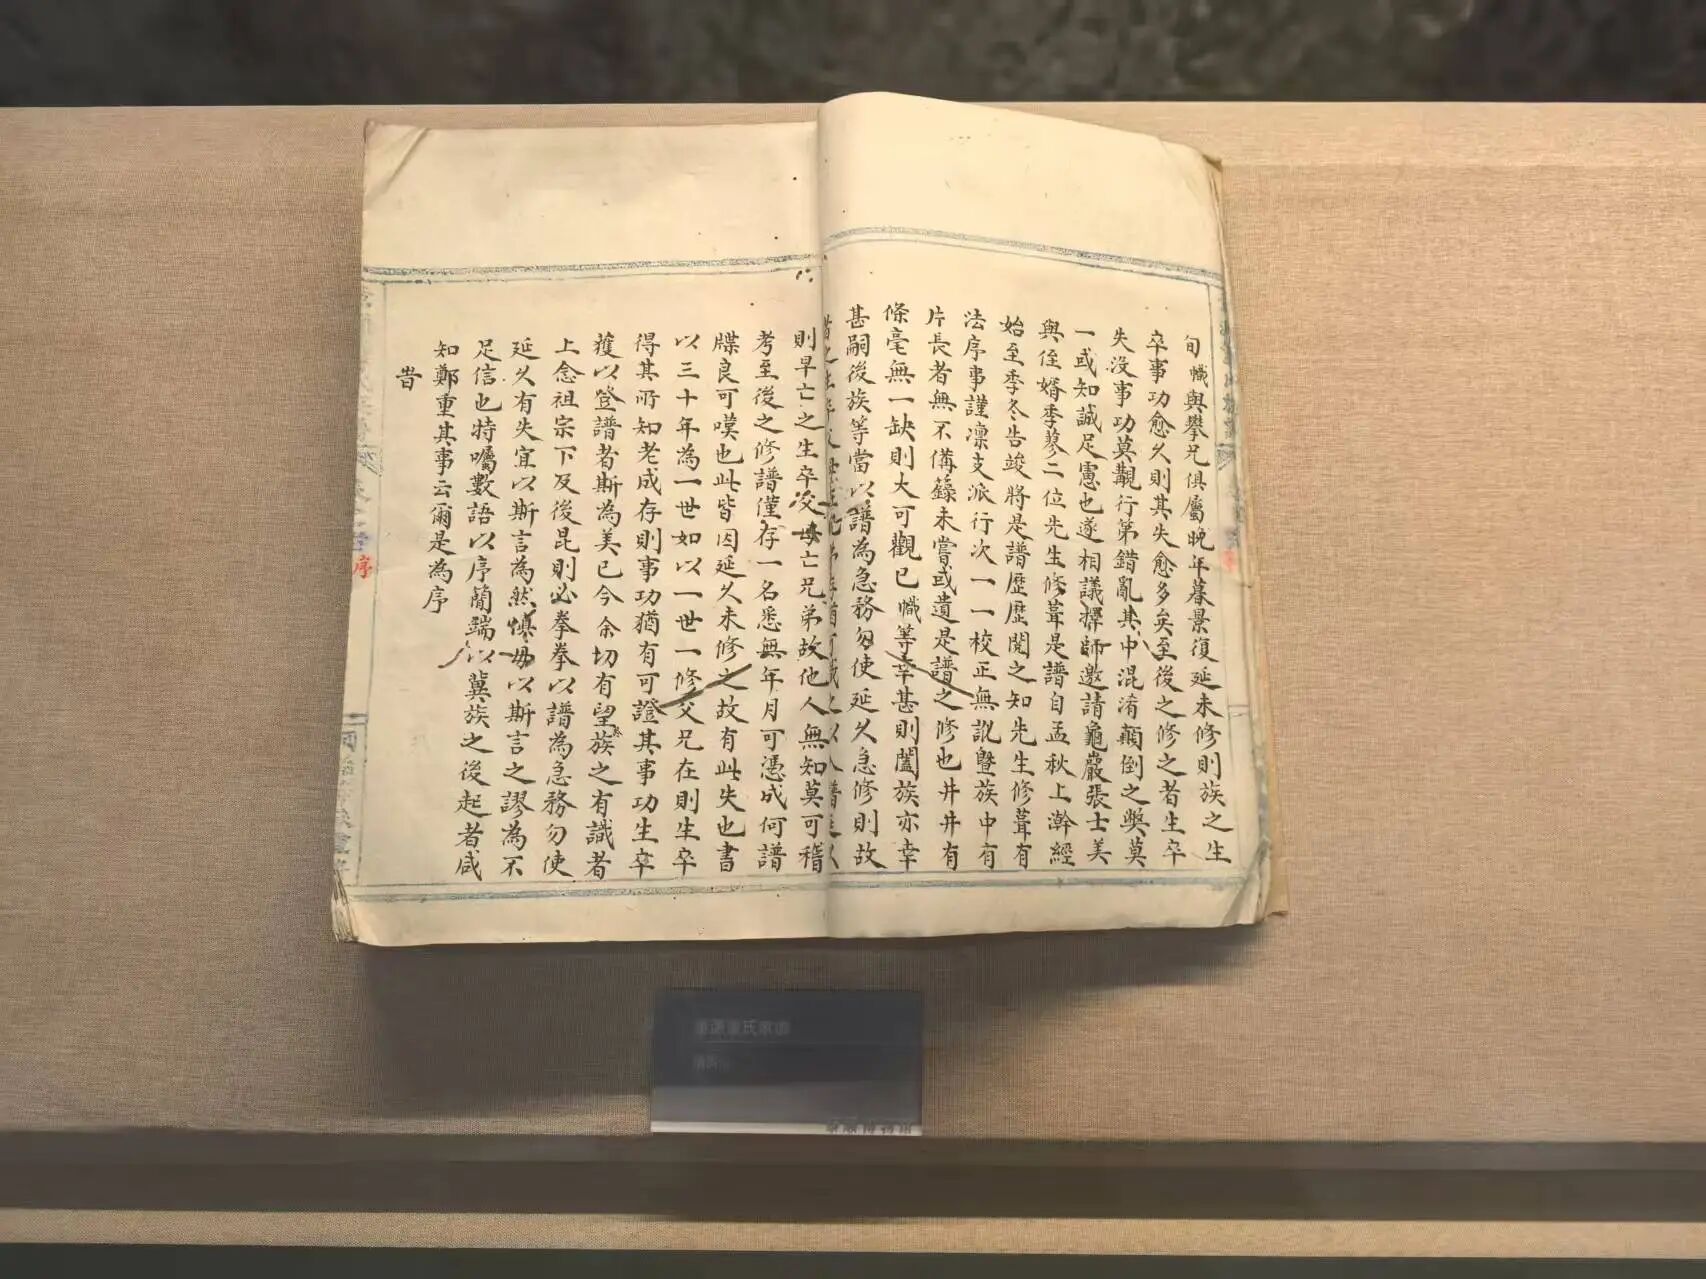 旬幟與攀兄俱屬晚年暮景復延未修則族之生
卒事功愈久則其失愈多矣至後之修之者生卒
失没事功莫覩行第錯亂其中混淆顛倒之獘莫
一或知誠足憲也遂相議擇師邀請龜巖張士美
與侄婿季蓼二位先生修葺是譜自孟秋上澣經
始至季冬告竣將是譜歷歷閱之知先生修葺有
法序事謹凛支派行次一一校正無訛曁族中有
片長者無不偹錄未嘗或遺是譜之修也井井有
條毫無一缺則大可觀已幟等幸甚則闔族亦幸
甚嗣後族等當以譜為急務勿使延久急修則故
則早亡之生卒父母亡兄弟故他人無知莫可稽
考至後之修譜僅存一名悉無年月可憑成何譜
牒良可嘆也此皆因延久未修之故有此失也書
以三十年為一世如以一世一修父兄在則生卒
得其所知老成存則事功猶有可證其事功生卒
獲以登譜者斯為美已今余切有望族之有識者
上念祖宗下及後昆則必拳拳以譜為急務勿使
延久有失宜以斯言為然慎毋以斯言之謬為不
足信也特囑數語以序簡端以冀族之後起者咸
知鄭重其事云爾是為序
旹
序